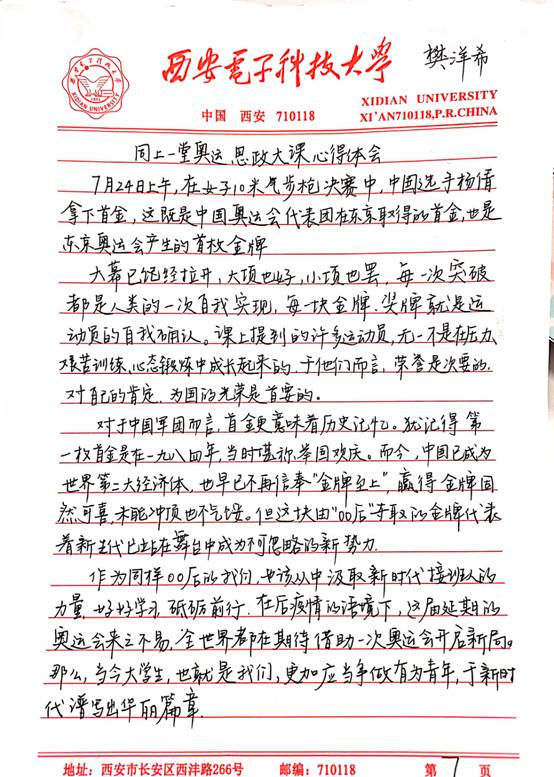 西安電子科技大学
樊洋希
中国 西安 710118
XIDIAN UNIVERSITY
XI'AN710118,P.R.CHINA
同上一堂奥运思政大课心得体会
7月24日上午,在女子10米气步枪决赛中,中国选手杨倩
拿下首金,这既是中国奥运会代表团在东京取得的首金,也是
东京奥运会产生的首枚金牌
大幕已经拉开,大项也好,小项也罢,每一次突破
都是人类的一次自我实现,每一块金牌、奖牌就是运
动员的自我确认。课上提到的许多运动员,无一不是在压力、
艰苦训练、心态锻炼中成长起来的,于他们而言,荣誉是次要的,
对自己的肯定,为国的光荣是首要的。
对于中国军团而言,首金更意味着历史记忆。犹记得第
一枚首金是在一九八四年,当时堪称举国欢庆。而今,中国已成为
世界第二大经济体,也早已不再信奉"金牌至上",赢得金牌固
然可喜,未能冲顶也不气馁。但这块由"00后"夺取的金牌代表
着新生代已站在舞台中成为不可忽略的新势力
作为同样00后的我们,也该从中汲取新时代接班人的
力量,好好学习,砥砺前行,在后疫情的语境下,这届延期的
奥运会来之不易,全世界都在期待借助一次奥运会开启新局。
那么,当今大学生,也就是我们,更加应当争做有为青年,于新时
代谱写出华丽篇章.
地址:西安市长安区西沣路266号 邮编:710118 第7页